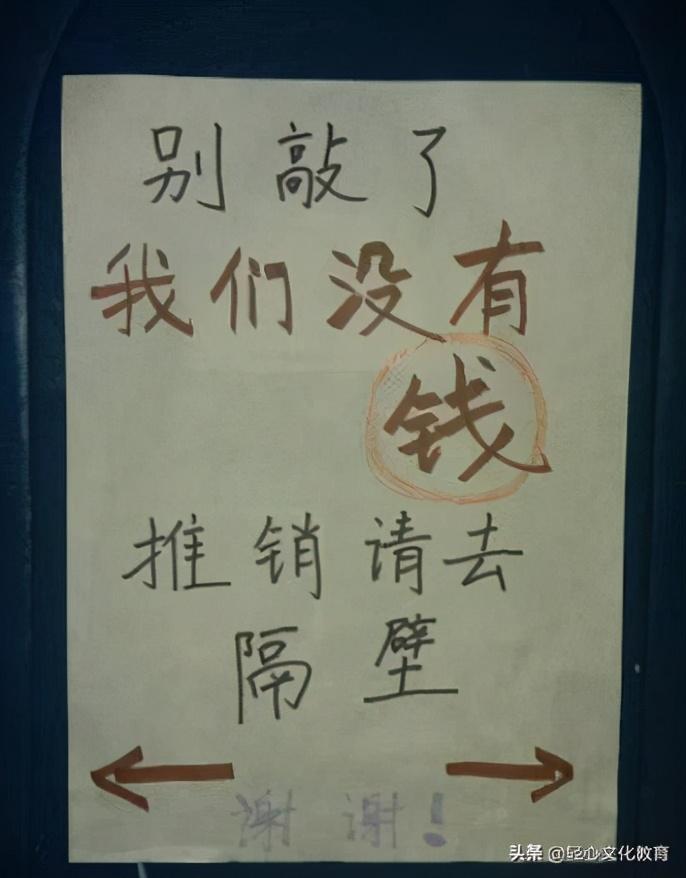 别敲了
我们没有
钱
推销请去
隔壁
谢谢！
头条 @轻心文化教育